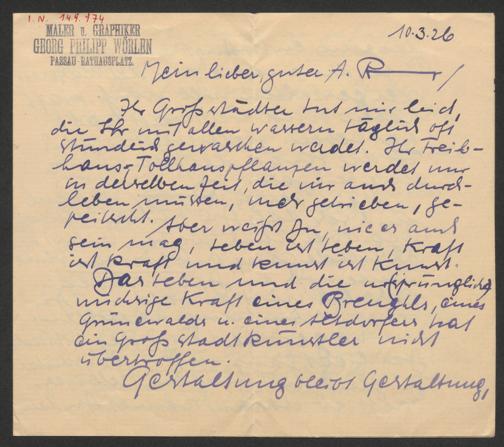 I. N. 149.974
MALER u. GRAPHIKER
GEORG PHILIPP WÖRLEN
PASSAU-RATHAUSPLATZ.
10.3.26
Mein lieber, guter A. R
Ihr Großstädter tut mir leid,
die Ihr mit allen wassern täglich oft
stündlich gewaschen werdet. Ihr Treib-
haus-Tollhauspflanzen werdet nur
in derselben Zeit, die wir auch durch-
leben müssen, mehr getrieben, ge-
peitscht. Aber weißt Du, wie es auch
sein mag, Leben ist Leben, Kraft
ist Kraft und Kunst ist Kunst.
Das Leben und die ursprünglich
Kraft eines Breughels, eines
Grünewalds u. eines Altdorfers, hat
ein Großstadtkünstler nicht
übertroffen.
Gestaltung bleibt Gestaltung,